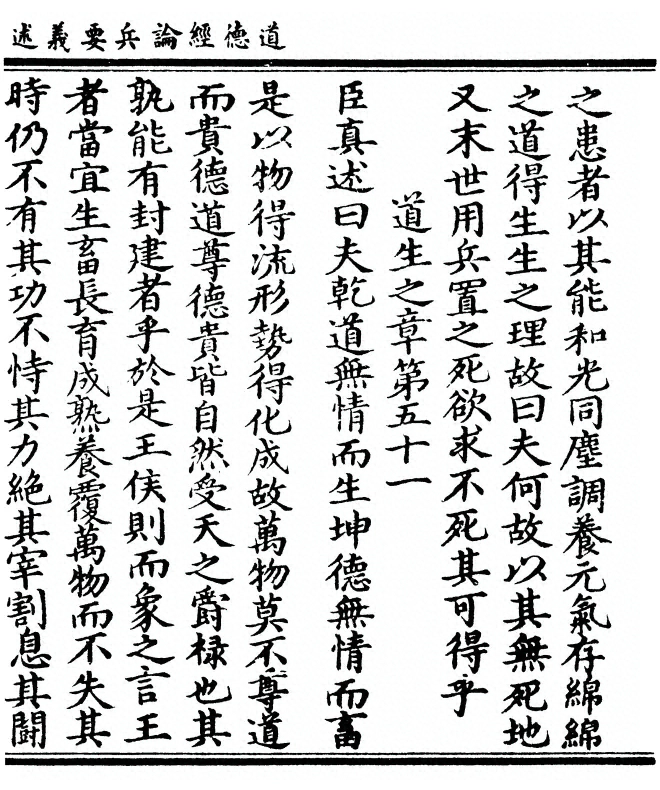 道德經論兵要義述
之患者以其能和光同塵調養元氣存綿綿
之道得生生之理故曰夫何故以其無死地
又末世用兵置之死欲求不死其可得乎
道生之章第五十一
臣真述曰夫乾道無情而生坤德無情而畜
是以物得流形勢得化成故萬物莫不尊道
而貴德道尊德貴皆自然受天之爵祿也其
孰能有封建者乎於是王侯則而象之言王
者當宜生畜長育成熟養覆萬物而不失其
時仍不有其功不恃其力絕其宰割息其闘